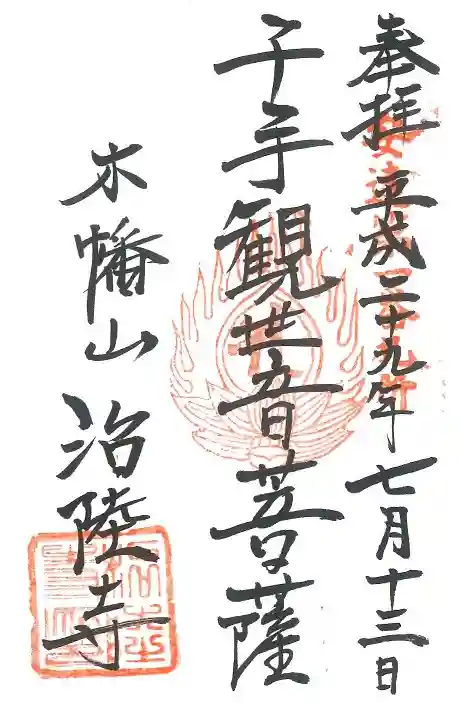 奉拝 平成二十九年 七月十三日
千手観世音菩薩
木幡山 治陸寺